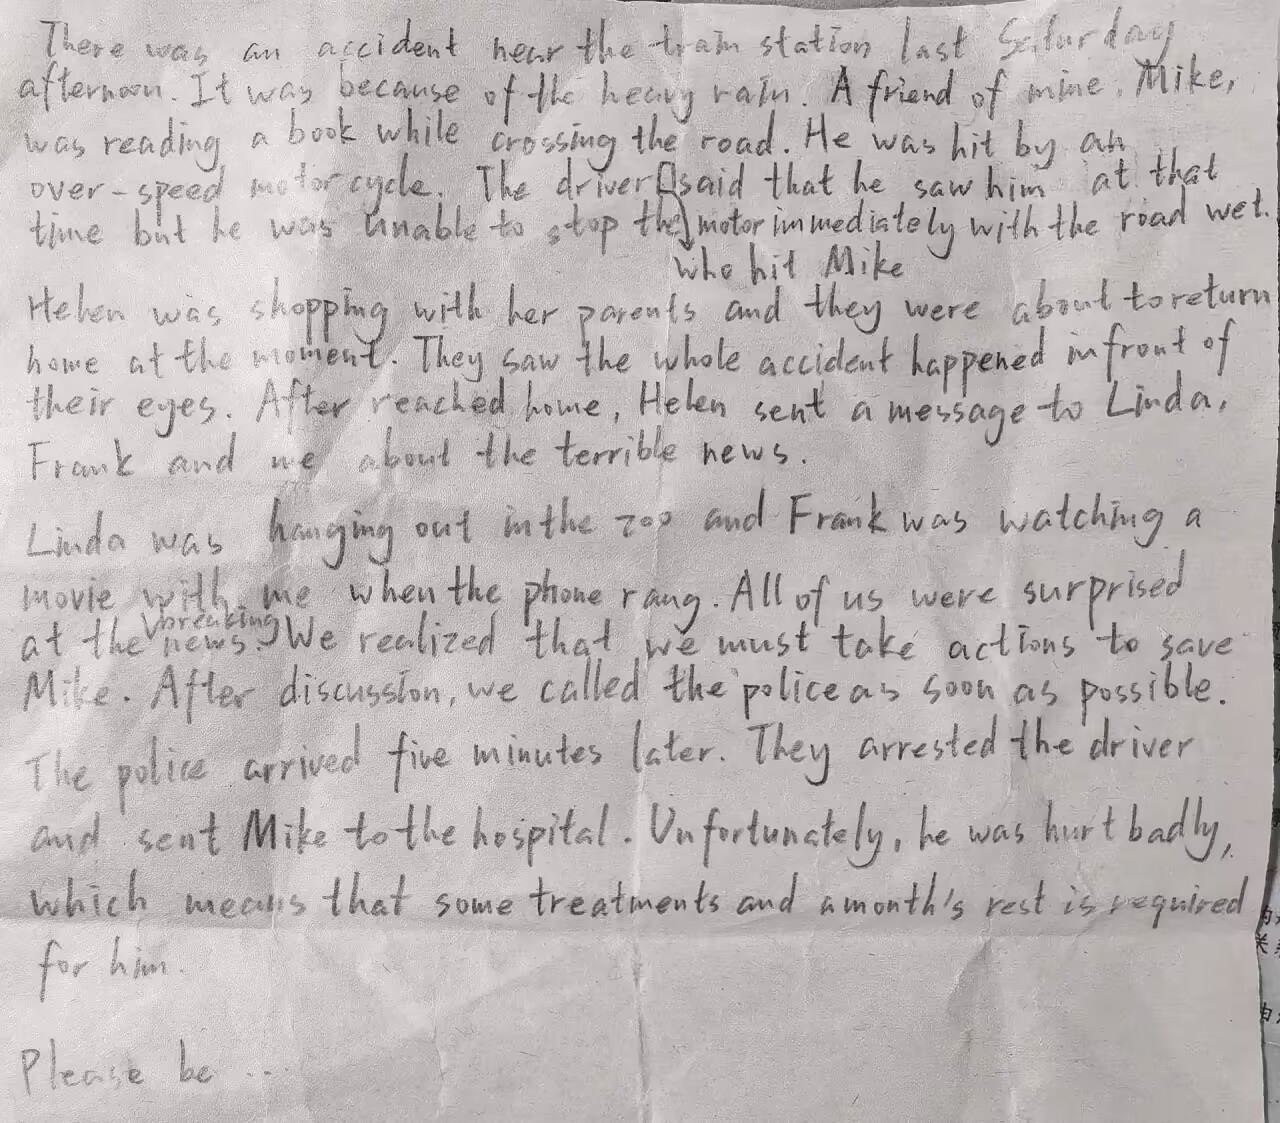 There was an accident near the train station last Saturday
afternoon. It was because of the heavy rain. A friend of mine, Mike,
was reading a book while crossing the road. He was hit by an
over-speed motorcycle. The driver said that he saw him at that
time but he was unable to stop the motor immediately with the road wet.
who hit Mike
Helen was shopping with her parents and they were about to return
home at the moment. They saw the whole accident happened in front of
their eyes. After reached home, Helen sent a message to Linda,
Frank and me about the terrible news.
Linda was hanging out in the zoo and Frank was watching a
movie with me when the phone rang. All of us were surprised
breaking
at the news. We realized that we must take actions to save
Mike. After discussion, we called the police as soon as possible.
The police arrived five minutes later. They arrested the driver
and sent Mike to the hospital. Unfortunately, he was hurt badly,
which means that some treatments and a month's rest is required
for him.
Please be ...